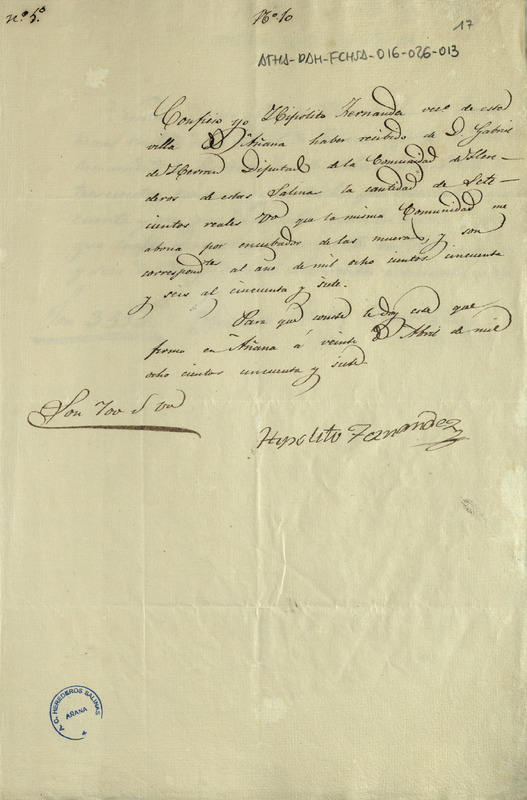 nº. 5º
Nº. 10
17
ATHA-DAH-FCHSA-016-026-013
Confieso yo Hipolito Fernandez vecº de esta
villa de Añana haber recibido de D. Gabriel
de Herran Diputado de la Comunidad de Here-
deros de estas Salinas la cantidad de Sete-
cientos reales vn que la misma Comunidad me
abona por encubador de las mueras, y son
correspondtes al año de mil ocho cientos cincuenta
y seis al cincuenta y siete.
Para que conste le doy este que
firmo en Añana á veinte de Abril de mil
ocho cientos cincuenta y siete.
Son 700 rs vn
Hipolito Fernandez
C. HEREDEROS SALINAS
AÑANA